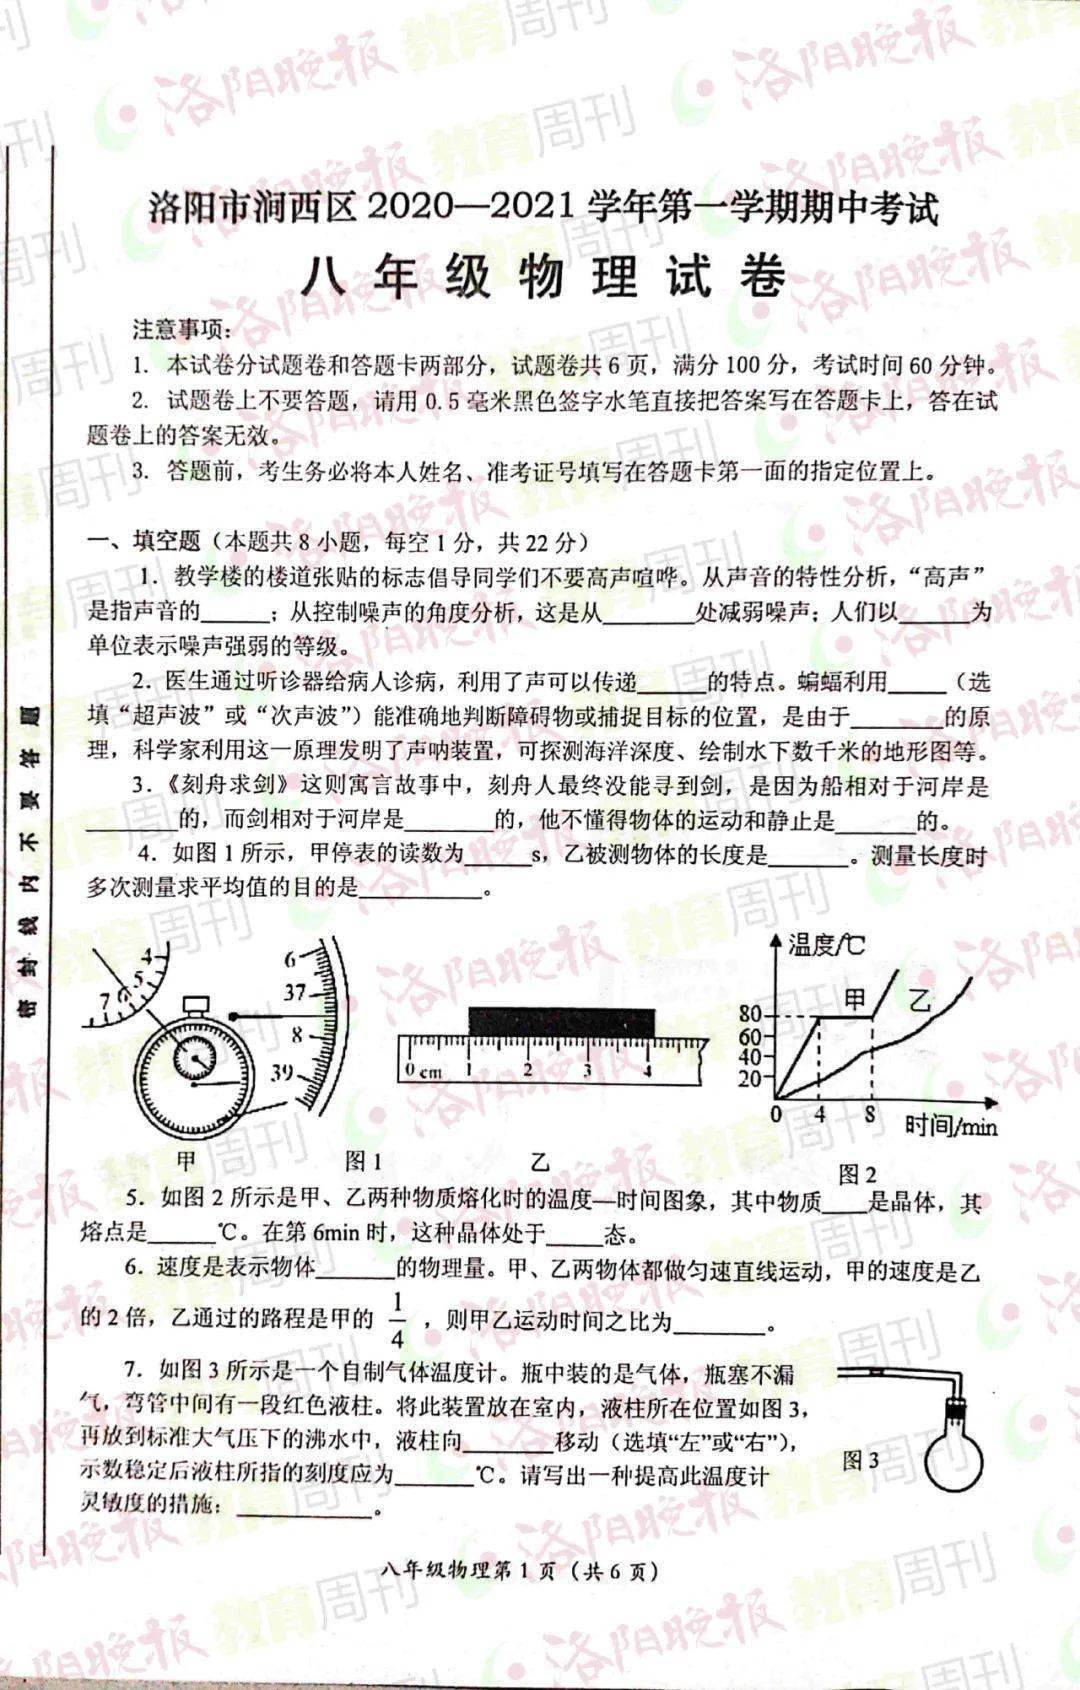 洛阳市涧西区2020—2021学年第一学期期中考试
八年级物理试卷
注意事项：
1. 本试卷分试题卷和答题卡两部分，试题卷共6页，满分100分，考试时间60分钟。
2. 试题卷上不要答题，请用0.5毫米黑色签字水笔直接把答案写在答题卡上，答在试
题卷上的答案无效。
3. 答题前，考生务必将本人姓名、准考证号填写在答题卡第一面的指定位置上。
一、填空题（本题共8小题，每空1分，共22分）
1．教学楼的楼道张贴的标志倡导同学们不要高声喧哗。从声音的特性分析，“高声”
是指声音的______；从控制噪声的角度分析，这是从________处减弱噪声；人们以______为
单位表示噪声强弱的等级。
2．医生通过听诊器给病人诊病，利用了声可以传递______的特点。蝙蝠利用_____（选
填“超声波”或“次声波”）能准确地判断障碍物或捕捉目标的位置，是由于________的原
理，科学家利用这一原理发明了声呐装置，可探测海洋深度、绘制水下数千米的地形图等。
3．《刻舟求剑》这则寓言故事中，刻舟人最终没能寻到剑，是因为船相对于河岸是
________的，而剑相对于河岸是________的，他不懂得物体的运动和静止是_______的。
4．如图1所示，甲停表的读数为______s，乙被测物体的长度是_______。测量长度时
多次测量求平均值的目的是___________。
4
5
6
7
6
37
8
39
0 cm 1 2 3 4
温度/℃
甲 乙
80
60
40
20
0 4 8
时间/min
甲 图1 乙
图2
5．如图2所示是甲、乙两种物质熔化时的温度—时间图象，其中物质____是晶体，其
熔点是______℃。在第6min时，这种晶体处于_____态。
6．速度是表示物体_______的物理量。甲、乙两物体都做匀速直线运动，甲的速度是乙
的2倍，乙通过的路程是甲的 1/4 ，则甲乙运动时间之比为________。
7．如图3所示是一个自制气体温度计。瓶中装的是气体，瓶塞不漏
气，弯管中间有一段红色液柱。将此装置放在室内，液柱所在位置如图3，
再放到标准大气压下的沸水中，液柱向________移动（选填“左”或“右”），
示数稳定后液柱所指的刻度应为_______℃。请写出一种提高此温度计
灵敏度的措施：____________。
图3
八年级物理第1页（共6页）
密封线内不要答题
洛阳晚报 教育周刊